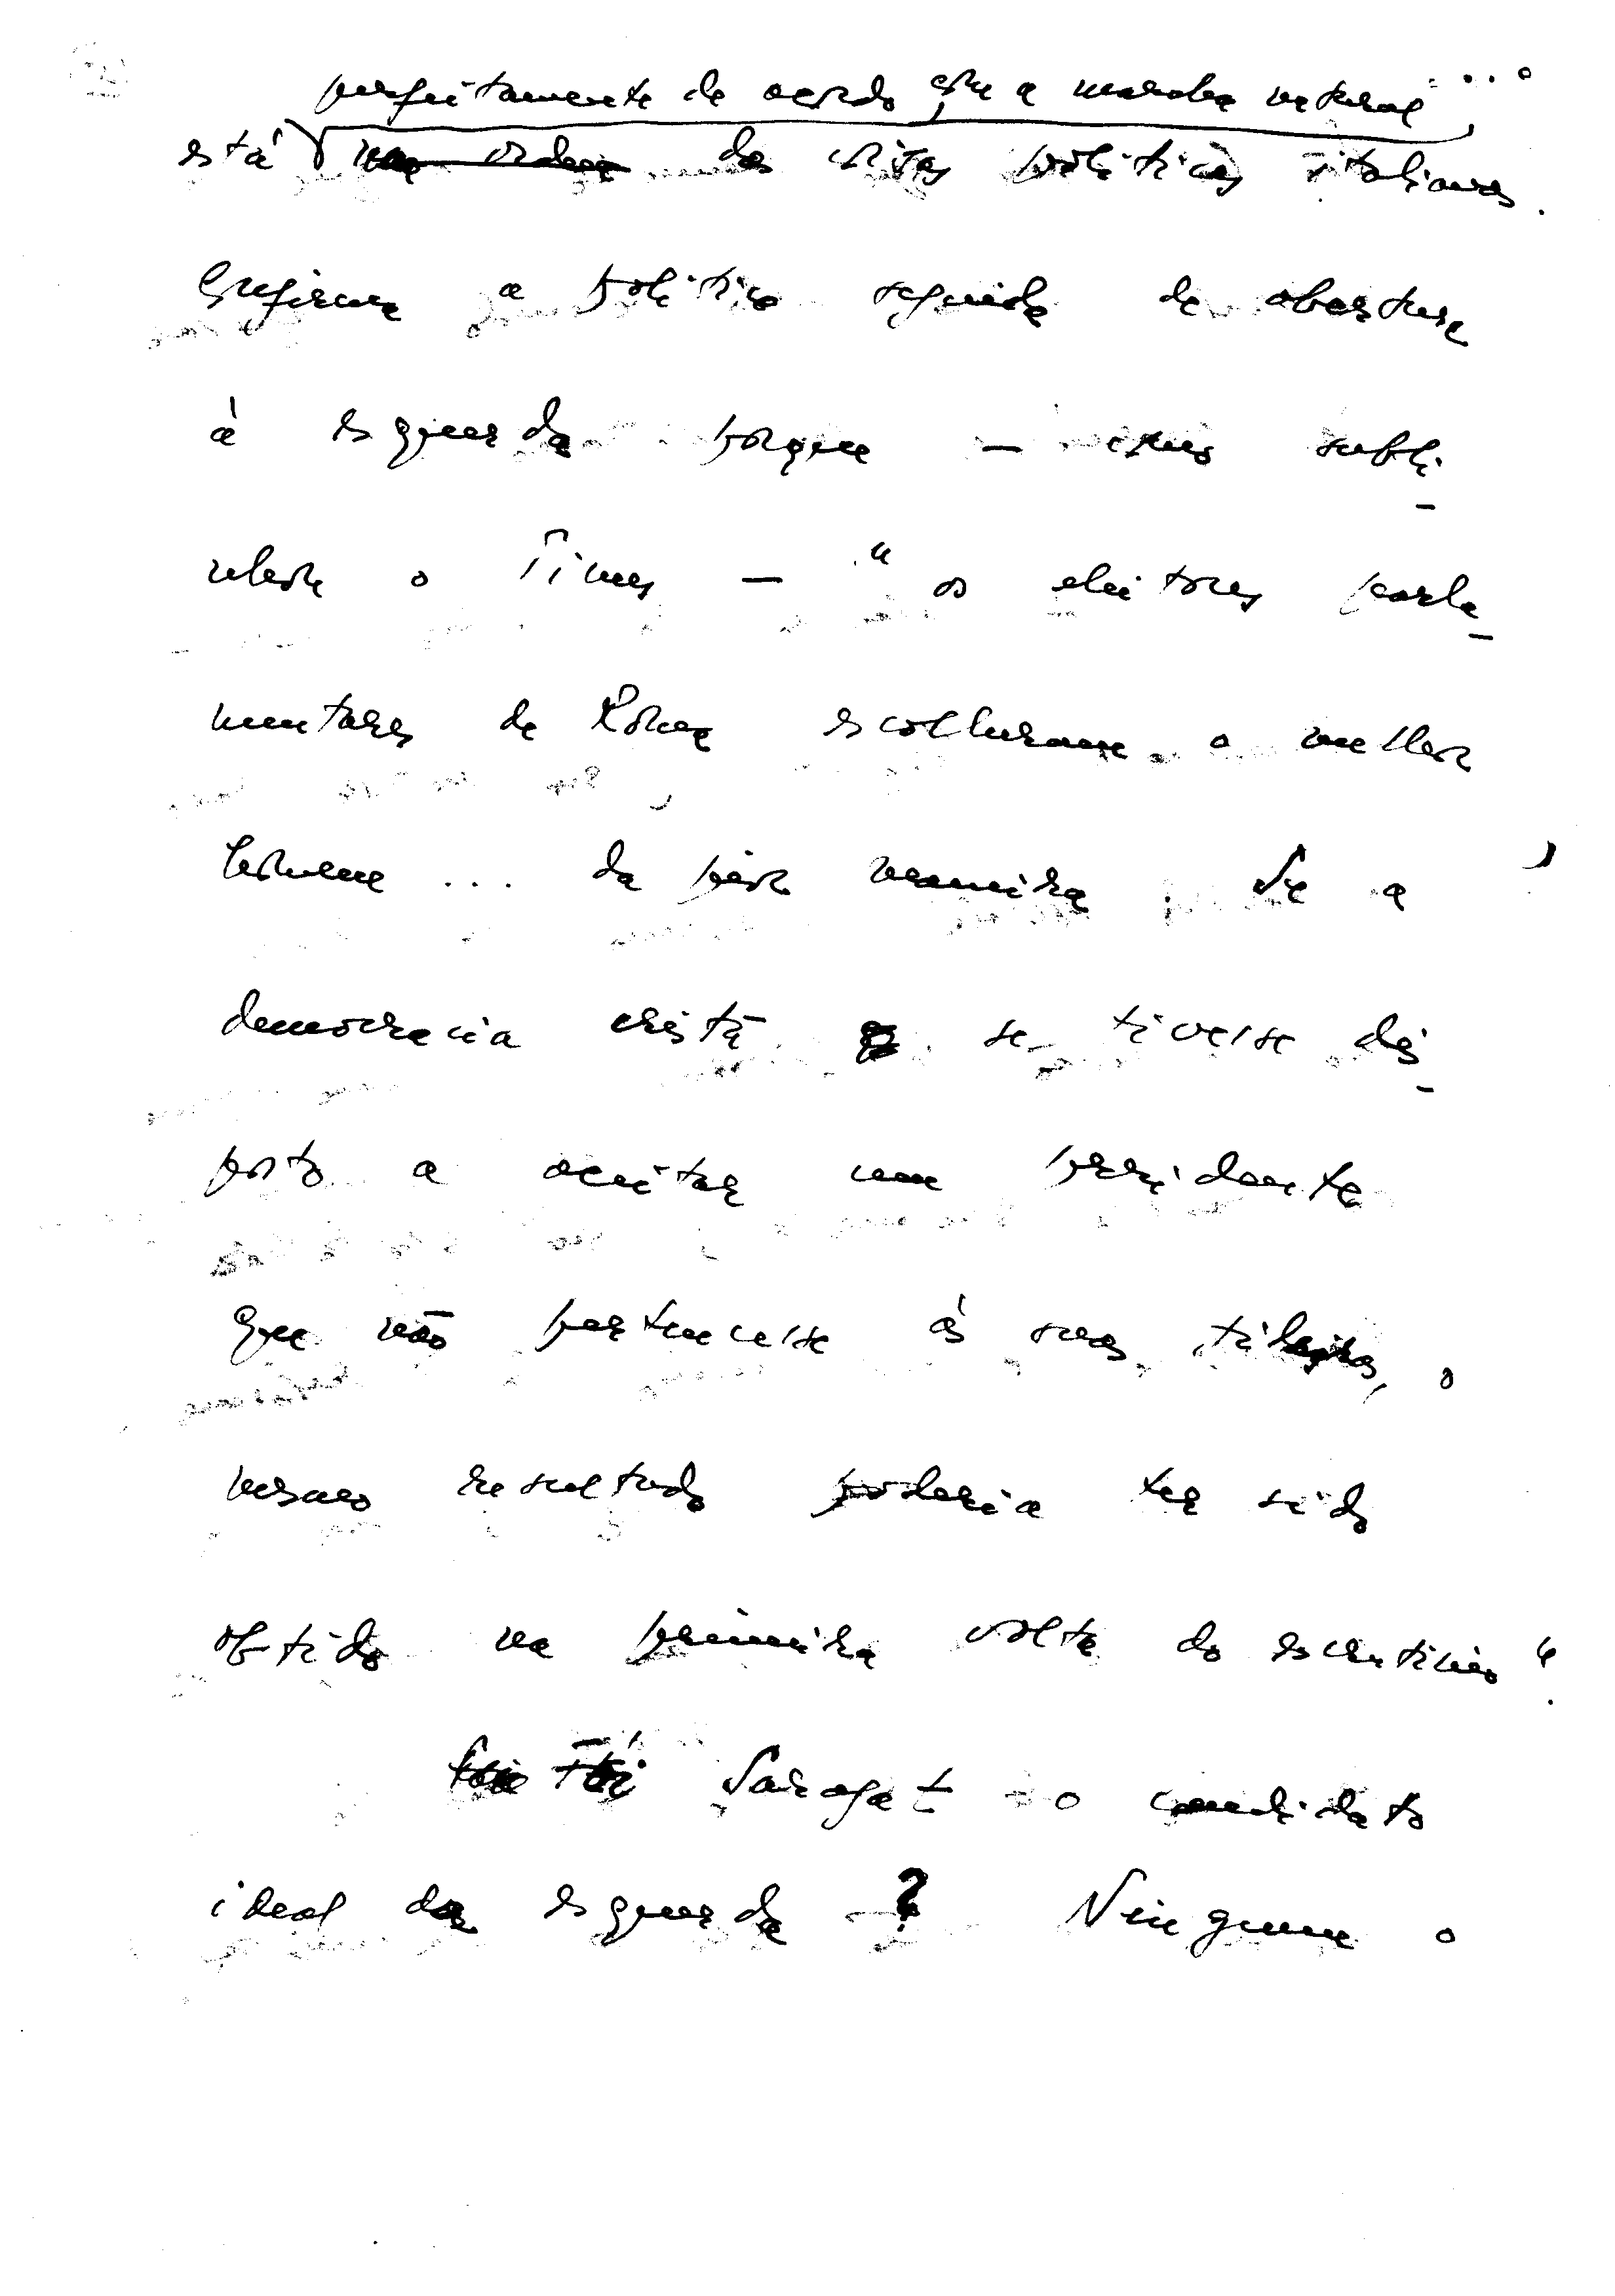 perfeitamente de acordo com a marcha natural ...
está na ordem das coisas políticas italianas.
Confirma a política seguida de abertura
à esquerda porque — como subli-
nhava o Times — "os eleitores parla-
mentares de Roma escolheram o melhor
homem ... da pior maneira. Se a
democracia cristã se tivesse dis-
posto a aceitar um presidente
que não pertencesse às suas fileiras, o
mesmo resultado poderia ter sido
obtido na primeira volta do escrutínio".
Saragat o candidato
ideal da esquerda? Ninguem o